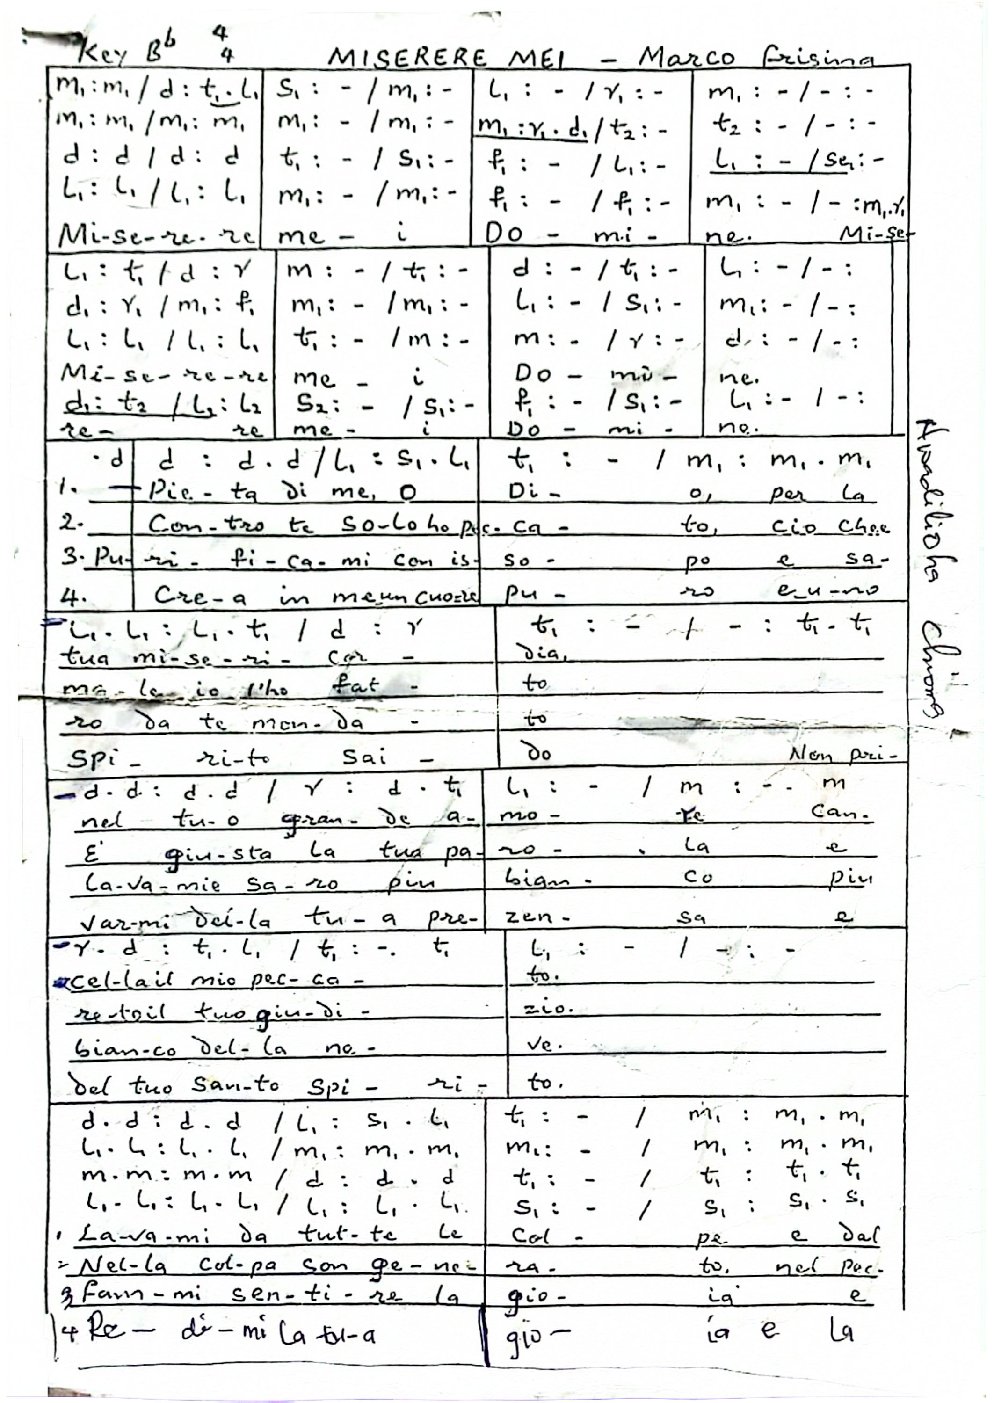 Key Bb 4/4 MISERERE MEI - Marco Frisina
m₁:m₁ / d:t₁.L₁ | S₁:- / m₁:- | L₁:- / r₁:- | m₁:- / -:-
m₁:m₁ / m₁:m₁ | m₁:- / m₁:- | m₁:r₁.d₁ / t₂:- | t₂:- / -:-
d:d / d:d | t₁:- / S₁:- | f₁:- / L₁:- | L₁:- / Se₁:-
L₁:L₁ / L₁:L₁ | m₁:- / m₁:- | f₁:- / f₁:- | m₁:- / -:m₁.r₁
Mi-se-re-re | me - i | Do - mi - | ne. Mi-se-
L₁:t₁ / d:r | m:- / t₁:- | d:- / t₁:- | L₁:- / -:
d₁:r₁ / m₁:f₁ | m₁:- / m₁:- | L₁:- / S₁:- | m₁:- / -:
L₁:L₁ / L₁:L₁ | t₁:- / m:- | m:- / r:- | d:- / -:
Mi-se-re-re | me - i | Do - mi - | ne.
d₁:t₂ / L₂:L₂ | S₂:- / S₁:- | f₁:- / S₁:- | L₁:- / -:
re- re | me - i | Do - mi - | ne.
.d | d:d.d / L₁:S₁.L₁ | t₁:- / m₁:m₁.m₁
1. — Pie-ta di me, O | Di - o, per la
2. Con-tro te so-lo ho pec-ca - to, cio chee
3. Pu-ri-fi-ca-mi con is-so - po e sa-
4. Cre-a in meun cuo-re | pu - ro e-u-no
L₁.L₁:L₁.t₁ / d:r | t₁:- / -:t₁.t₁
tua mi-se-ri-cor - | dia,
ma-le io l'ho fat - | to
ro da te mon-da - | to
Spi - ri-to Sal - | do Non pri-
d.d:d.d / r:d.t₁ | L₁:- / m:-.m
nel tu-o gran-de a- | mo - re Can-
E' giu-sta la tua pa- | ro - la e
La-va-mie sa-ro piu | bian - co piu
var-mi del-la tu-a pre- | zen - sa e
r.d:t₁.L₁ / t₁:-.t₁ | L₁:- / -:-
cel-lail mio pec-ca - | to.
re-toil tuo giu-di - | zio.
bian-co del-la ne - | ve.
del tuo San-to Spi - ri - | to.
d.d:d.d / L₁:S₁.L₁ | t₁:- / m₁:m₁.m₁
L₁.L₁:L₁.L₁ / m₁:m₁.m₁ | m₁:- / m₁:m₁.m₁
m.m:m.m / d:d.d | t₁:- / t₁:t₁.t₁
L₁.L₁:L₁.L₁ / L₁:L₁.L₁ | S₁:- / S₁:S₁.S₁
1 La-va-mi da tut-te le | Col - pe e dal
2 Nel-la Col-pa son ge-ne- | ra - to, nel pec-
3 fam-mi sen-ti-re la | gio - ia e
4 Re - di-mi la tu-a | gio - ia e la